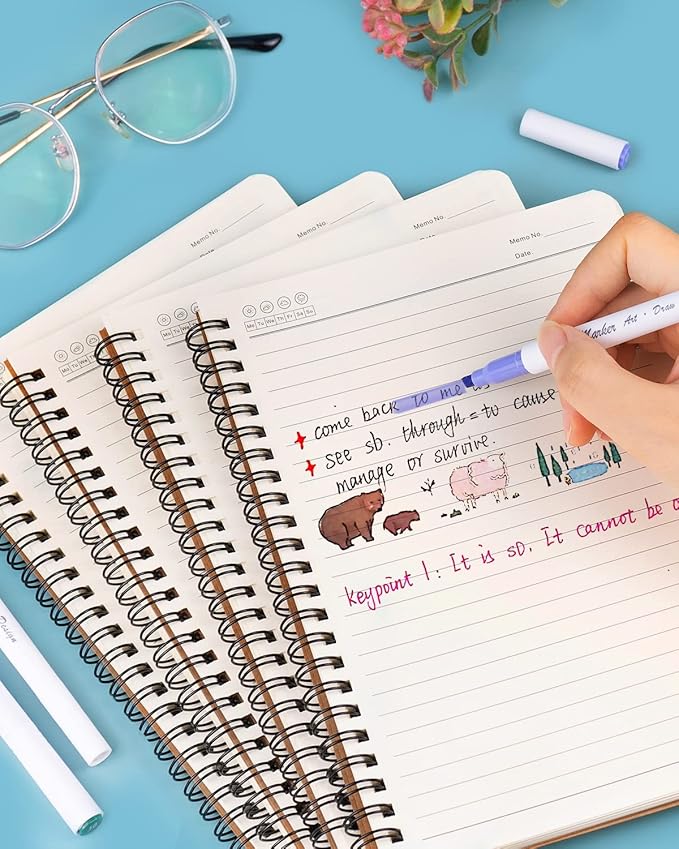 Memo No.
Memo No.
Memo No.
Memo No.
Date.
Mo Tu We Th Fr Sa Su
Mo Tu We
Mo Tu We
Marker Art · Draw
come back to me as
see sb. through = to cause
manage or survive.
Keypoint 1: It is so. It cannot be
Design